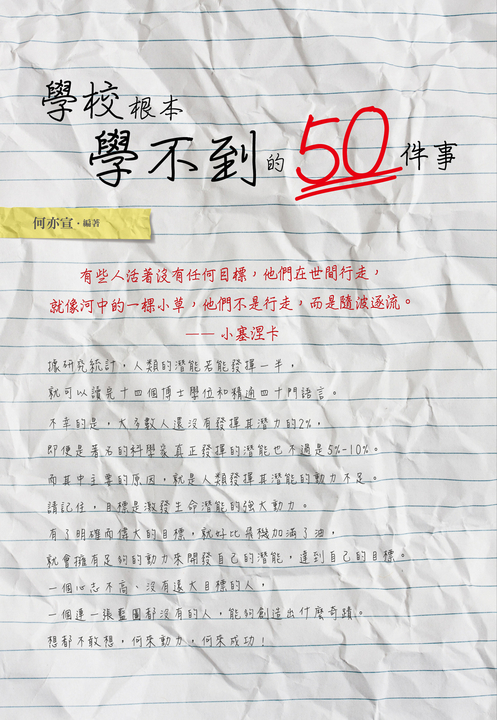 學校根本
學不到的50件事
何亦宣・編著
有些人活著沒有任何目標，他們在世間行走，
就像河中的一棵小草，他們不是行走，而是隨波逐流。
—— 小塞涅卡
據研究統計，人類的潛能若能發揮一半，
就可以讀完十四個博士學位和精通四十門語言。
不幸的是，大多數人還沒有發揮其潛力的2%，
即便是著名的科學家真正發揮的潛能也不過是5%-10%。
而其中主要的原因，就是人類發揮其潛能的動力不足。
請記住，目標是激發生命潛能的強大動力。
有了明確而偉大的目標，就好比飛機加滿了油，
就會擁有足夠的動力來開發自己的潛能，達到自己的目標。
一個心志不高、沒有遠大目標的人，
一個連一張藍圖都沒有的人，能夠創造出什麼奇蹟。
想都不敢想，何來動力，何來成功！